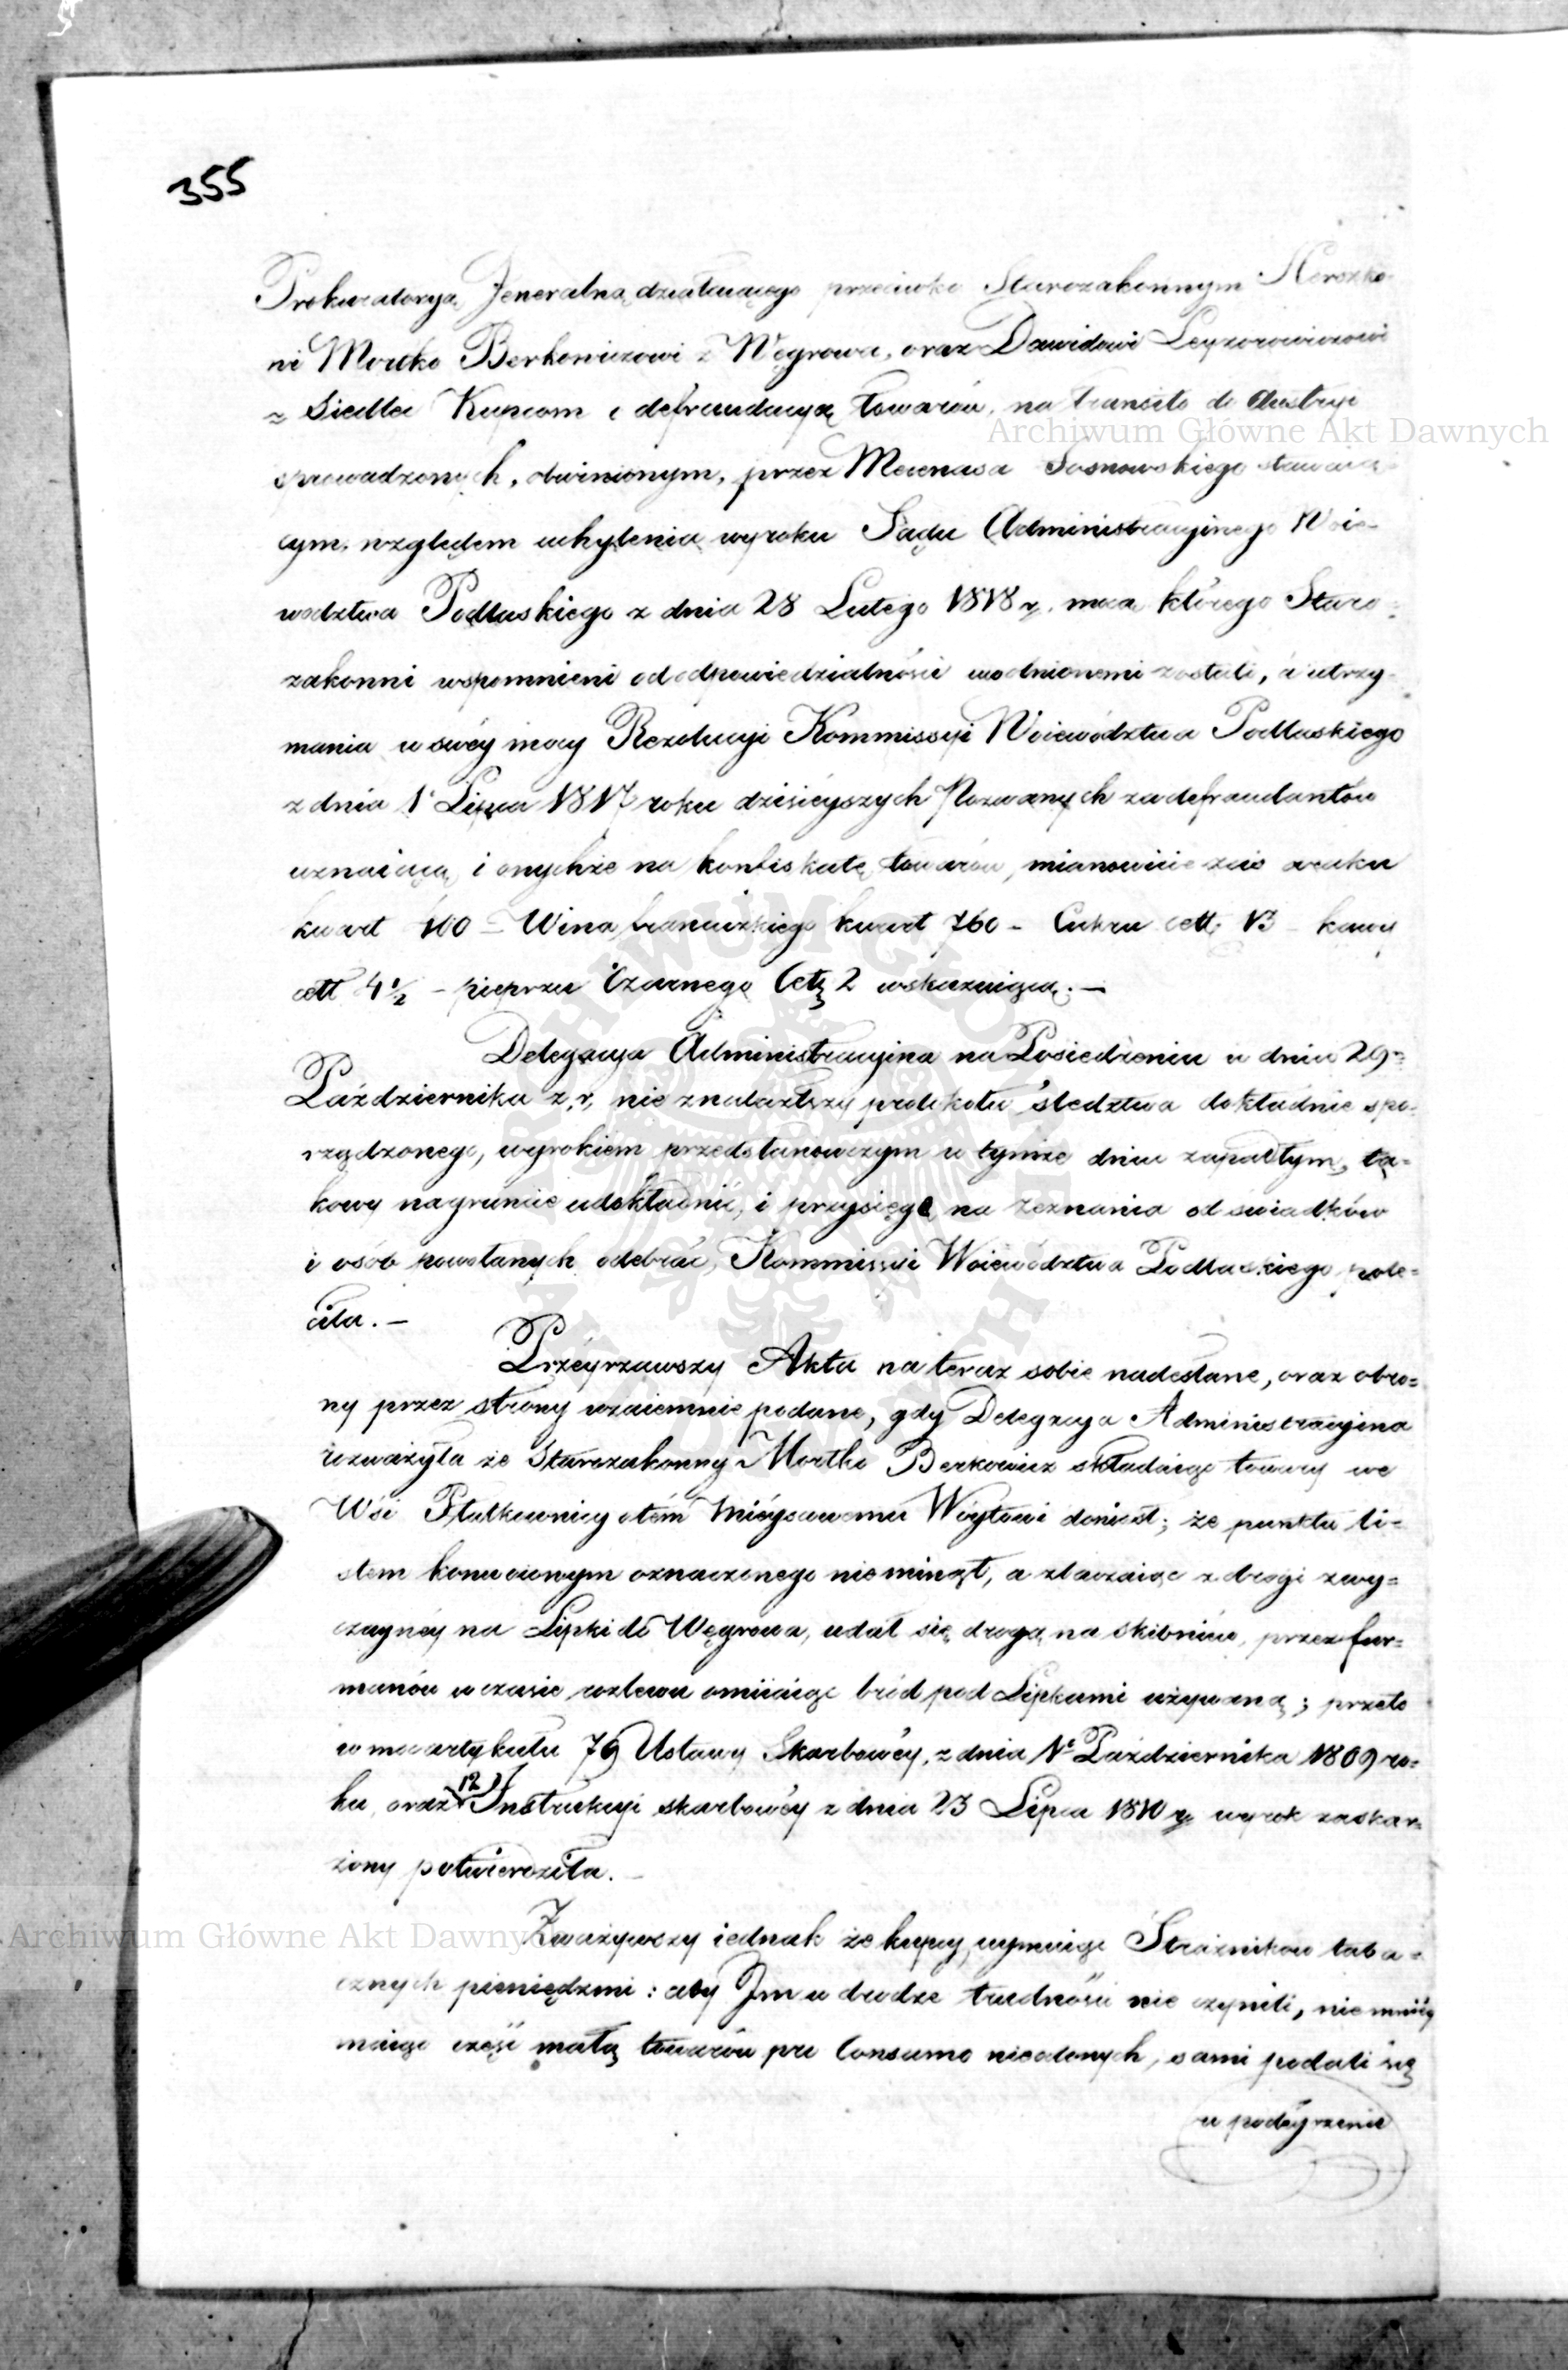 355
Prokuratoryą Jeneralną działaiącego przeciwko Starozakonnym Herszko-
wi Mortko Berkowiczowi z Węgrowa, oraz Dawidowi Leyzorowiczowi
z Siedlec Kupcom o defraudacyą towarów, na transito do Austryi
sprowadzonych, obwinionym, przez Mecenasa Sosnowskiego stawaią-
cym, względem uchylenia wyroku Sądu Administracyinego Woie-
wodztwa Podlaskiego z dnia 28 Lutego 1818 r, mocą którego Staro-
zakonni wspomnieni od odpowiedzialności uwolnionemi zostali, a utrzy-
mania w swéy mocy Rezolucyi Kommissyi Woiewództwa Podlaskiego
z dnia 1 Lipca 1817 roku dzisiéyszych Pozwanych za defraudantów
uznaiącą, i onychże na konfiskatę towarów, mianowicie zaś araku
kwart 100 – Wina francuzkiego kwart 760 – Cukru cett. 13 – kawy
cett 4½ – pieprzu Czarnego Cett 2 wskazuiącą. –
Delegacya Administracyina na Posiedzeniu w dniu 29
Października z, r, nie znalazłszy protokołu śledztwa dokładnie spo-
rządzonego, wyrokiem przedstanowczym w tymże dniu zapadłym, ta-
kowy na gruncie udokładnić, i przysięgę na zeznania od świadków
i osób powołanych odebrać, Kommissyi Woiewództwa Podlaskiego pole-
ciła. –
Przéyrzawszy Akta na teraz sobie nadesłane, oraz obro-
ny przez strony wzaiemnie podane, gdy Delegacya Administracyina
rozważyła że Starozakonny Mortko Berkowicz składaiąc towary we
Wsi Płatkownicy o tém Miéyscowemu Wóytowi doniosł; że punktu li-
stem konwoiowym oznaczonego nie minął, a zbaczaiąc z drogi zwy-
czaynéy na Lipki do Węgrowa, udał się drogą na Skibniew, przez fur-
manów w czasie rozlewu omiiaiąc bród pod Lipkami używaną; przeto
w moc artykułu 79 Ustawy Skarbowéy, z dnia 1º Października 1809 ro-
ku, oraz 12 Instrukcyi skarbowéy z dnia 23 Lipca 1810 r, wyrok zaskar-
żony potwierdziła. –
Zważywszy iednak że kupcy uymuiąc Strażników taba-
cznych pieniędzmi: aby Jm w drodze trudności nie czynili, niemniéy
maiąc część małą towarów pro Consumo nieclonych, sami podali się
w podéyrzenie
Archiwum Główne Akt Dawnych
Archiwum Główne Akt Dawnych